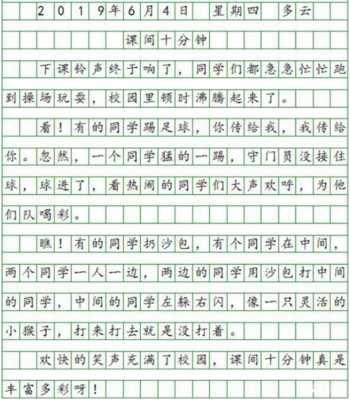 2019年6月4日 星期四 多云
课间十分钟
下课铃声终于响了，同学们都急急忙忙跑
到操场玩耍，校园里顿时沸腾起来了。
看！有的同学踢足球，你传给我，我传给
你。忽然，一个同学猛的一踢，守门员没接住
球，球进了，看热闹的同学们大声欢呼，为他
们队喝彩。
瞧！有的同学扔沙包，有个同学在中间，
两个同学一人一边，两边的同学用沙包打中间
的同学，中间的同学左躲右闪，像一只灵活的
小猴子，打来打去就是没打着。
欢快的笑声充满了校园，课间十分钟真是
丰富多彩呀！